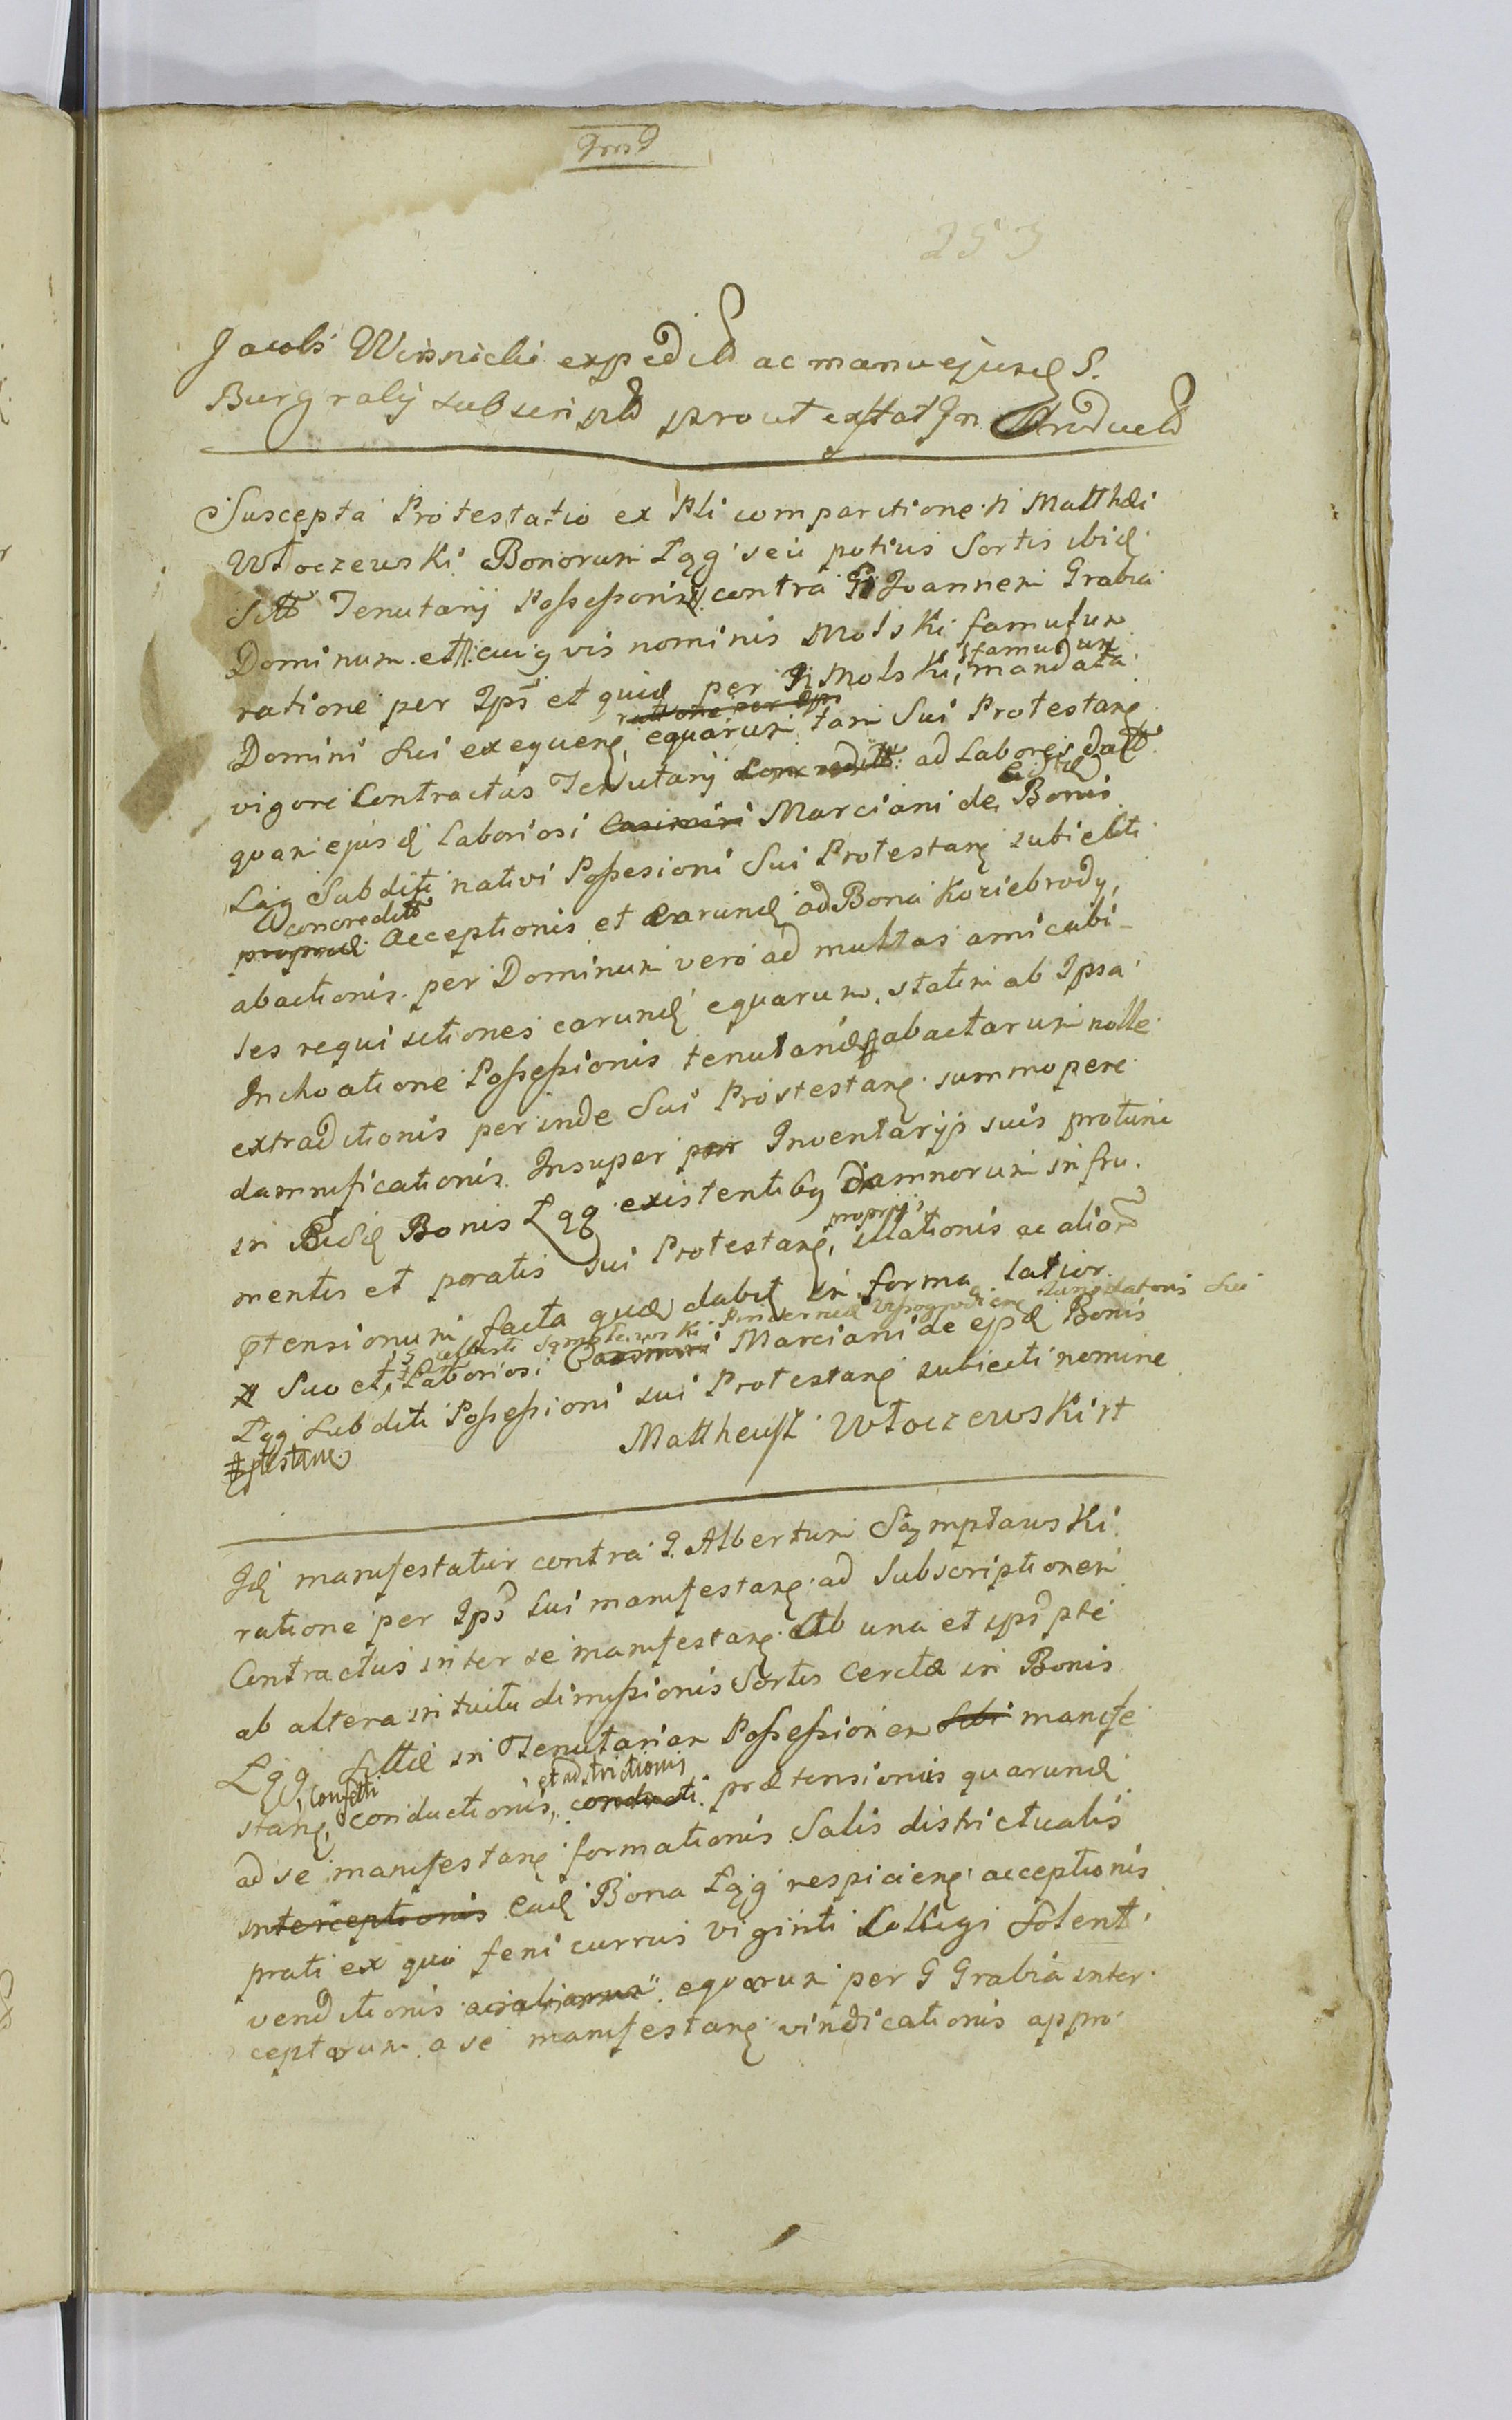 253
Jacobi Wisnicki expedit ac manu ejusd S.
Burgrabij subscript prout exstat In Producto
Suscepta Protestatio ex Pli comparitione N Matthæi
Włoczewski Bonorum Łąg seu potius Sortis ibid
sitt Tenutarij Possessoris contra G Joannem Grabia
Dominum et N cuiqvis nominis Molski famulum
ratione per Ips et quid per N Molski, famulum mandata
Domini sui exequen, ratione per Ips equarum tam Sui Protestang
vigore Contractus Tenutarij Concreditt ad Labores datt
quam ejusd Laboriosi Casimiri Marciani de eisd Bonis
Łąg Subditi nativi Possesioni Sui Protestang subiecti
concredit propriæ acceptionis et earund ad Bona Koziebrody,
abactionis per Dominum vero ad multas amicabi-
les requisitiones earund equarum, statim ab Ipsa
Inchoatione Possessionis tenutariæ abactarum nolle
extraditionis perinde Sui Protestang summopere
damnificationis. Insuper per Inventarijs suis protunc
in Eisd Bonis Łąg existentibg damnorum in fru-
mentis et pratis sui Protestang, proprijs illationis ac alior
ptensionum facta quæ dabit in forma latior
Suo et, Laboriosi Casimiri Marciani de ejsd Bonis
Łąg Subditi Possessioni sui Protestang subiecti nomine
ptestanę
Mattheusz Włoczewski
Id manifestatur contra G. Albertum Sąmpławski
ratione per Ips sui manifestang ad Subscriptionem
Contractus inter se manifestang Ab una et ips pte
ab altera intuitu dimissionis Sortis Certæ in Bonis
Łąg sittæ in Tenutariam Possessionem sibi manife
stang, confecti conductionis, et adstrictionis conducti prætensionis quarund
ad se manifestang formationis Salis districtualis
interceptionis ead Bona Łąg respicieng acceptionis
prati ex quo feni currus viginti Collegi solent
venditionis equarum per G Grabia inter
ceptarum a se manifestang vindicationis appro